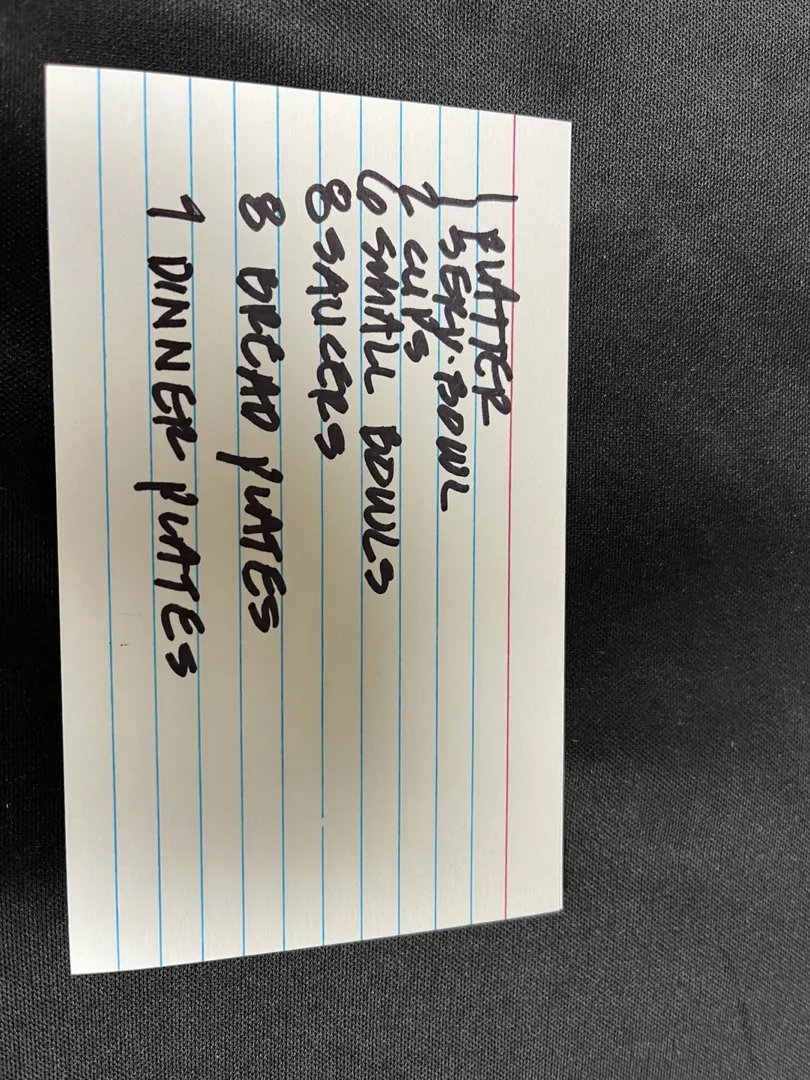 1 PLATTER
1 SERV. BOWL
2 CUPS
6 SMALL BOWLS
8 SAUCERS
8 BREAD PLATES
1 DINNER PLATES